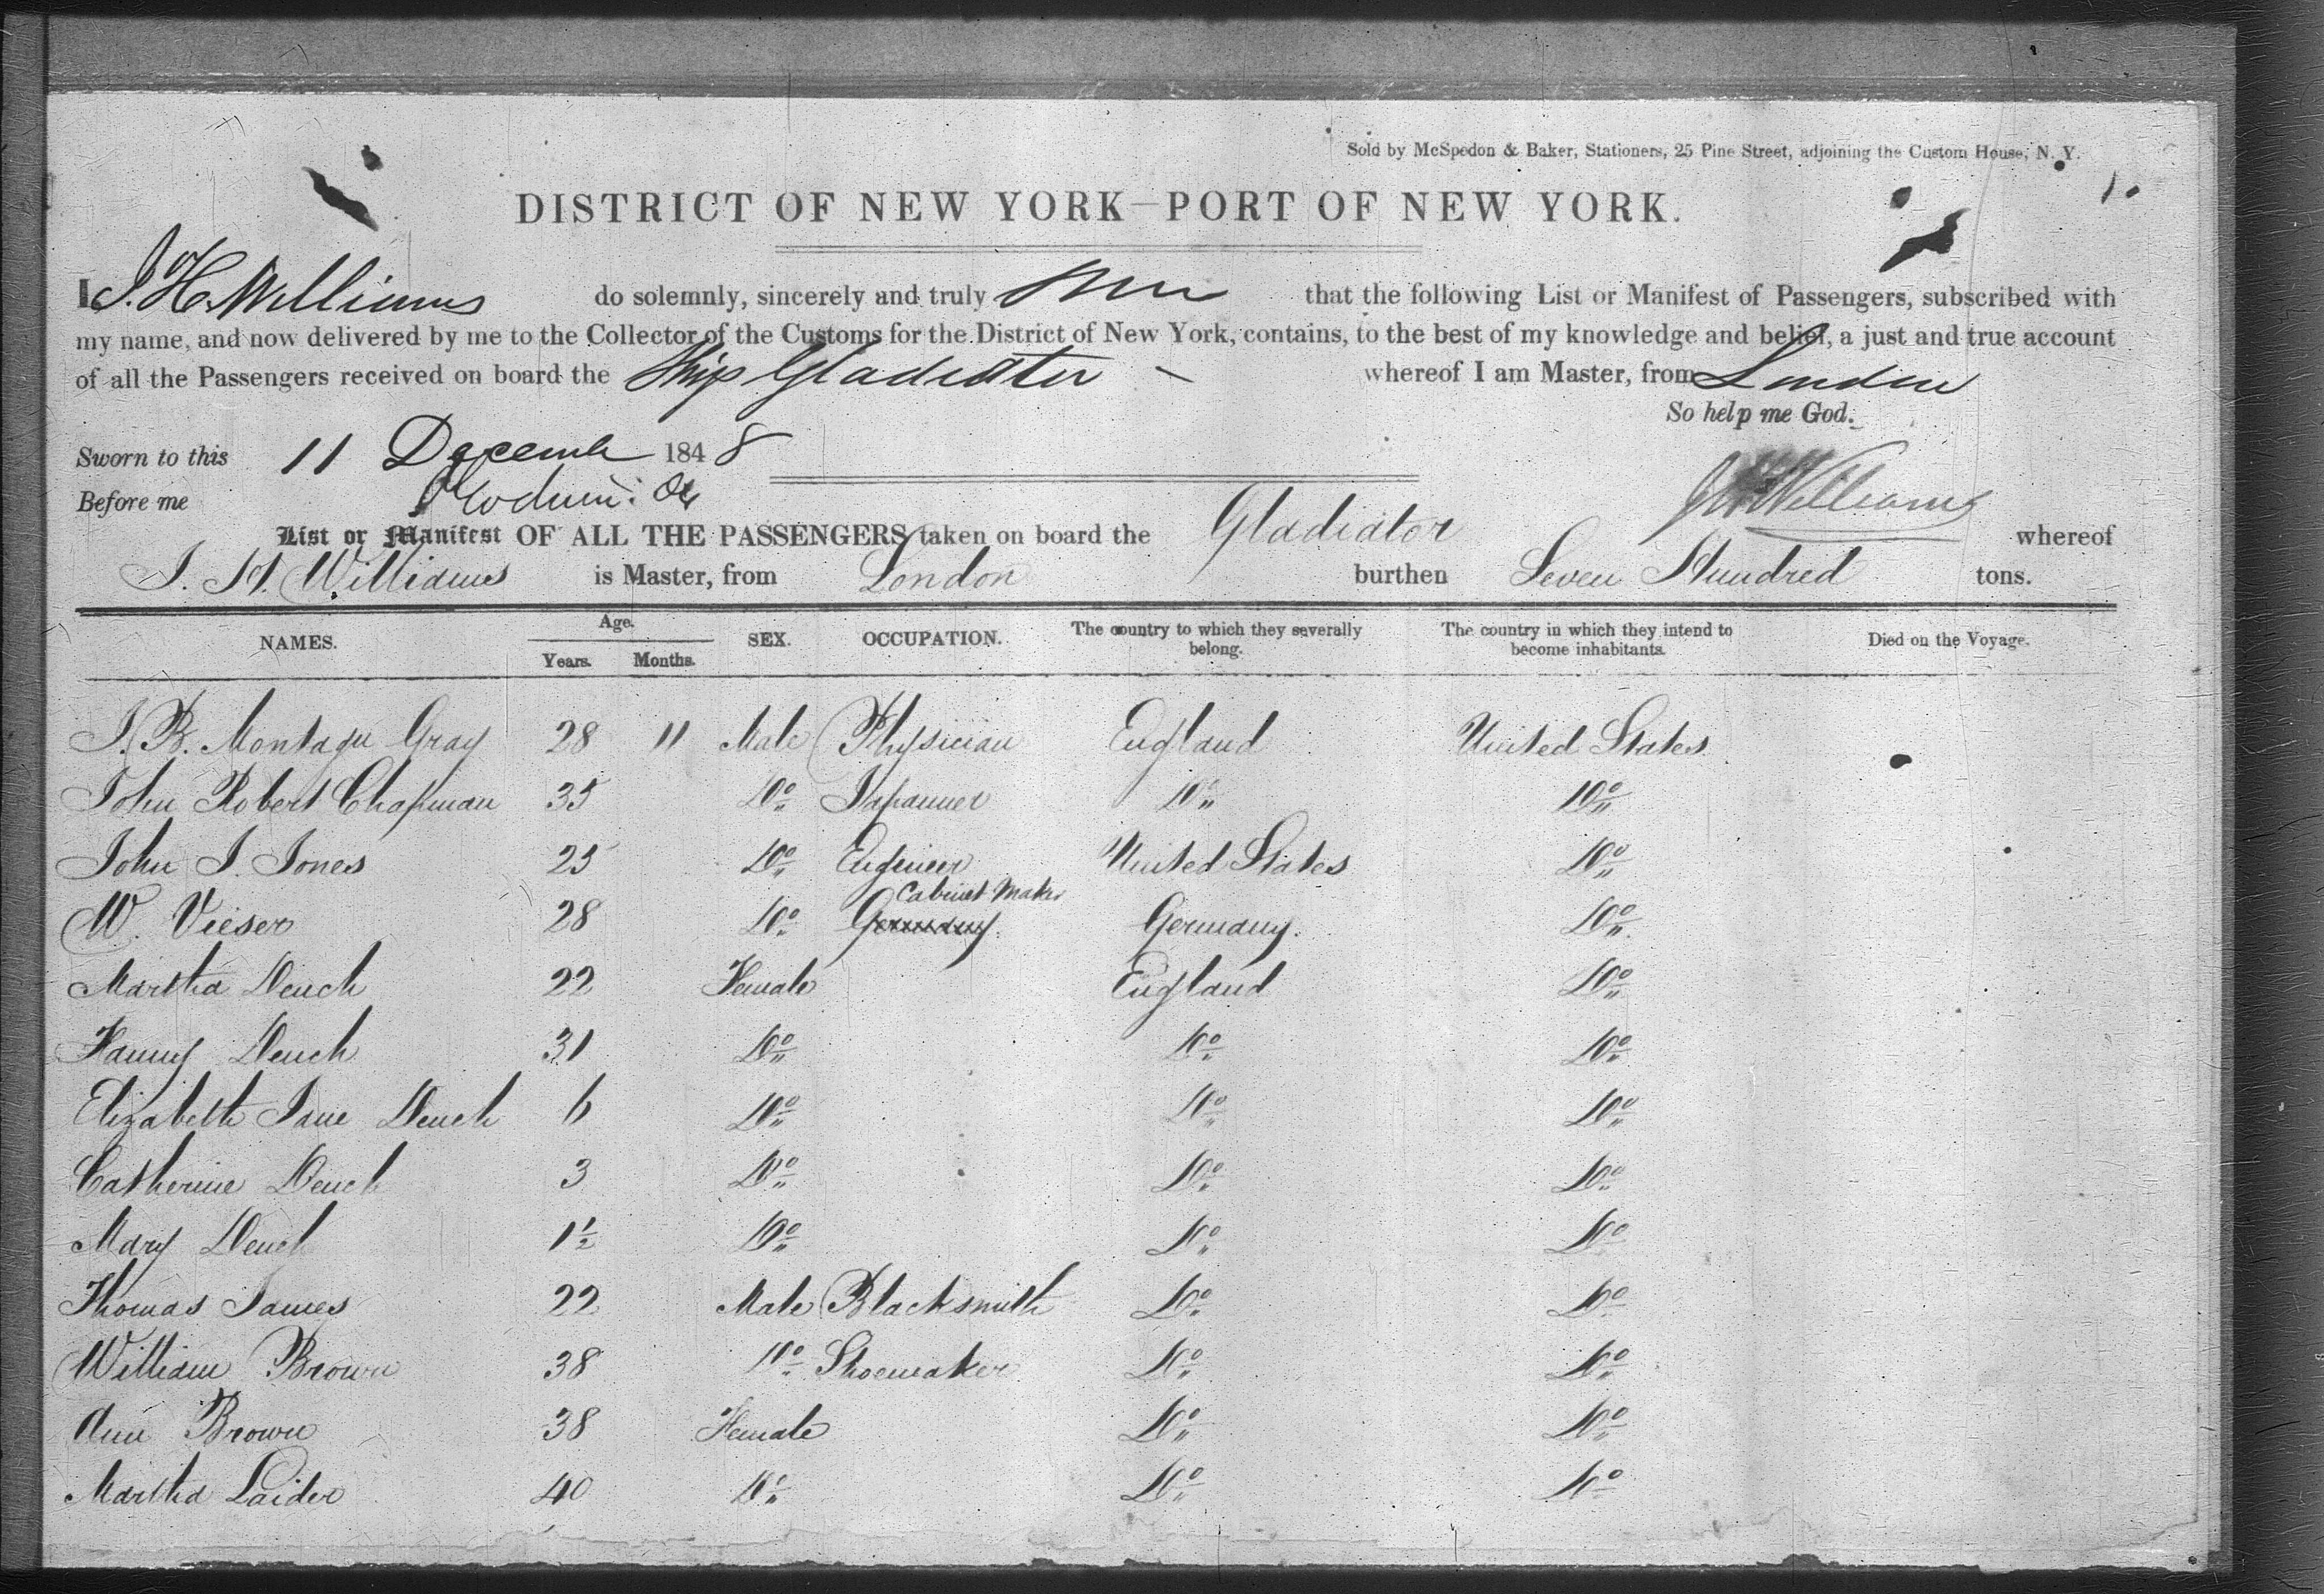 Sold by McSpedon & Baker, Stationers, 25 Pine Street, adjoining the Custom House, N. Y.
1.
DISTRICT OF NEW YORK—PORT OF NEW YORK.
I J. H. Williams do solemnly, sincerely and truly that the following List or Manifest of Passengers, subscribed with
my name, and now delivered by me to the Collector of the Customs for the District of New York, contains, to the best of my knowledge and belief, a just and true account
of all the Passengers received on board the Ship Gladiator whereof I am Master, from London
So help me God.
Sworn to this 11 Decemb 1848
Before me J H Williams
List or Manifest OF ALL THE PASSENGERS taken on board the Gladiator whereof
J. H. Williams is Master, from London burthen Seven Hundred tons.
NAMES. Age. Years. Months. SEX. OCCUPATION. The country to which they severally belong. The country in which they intend to become inhabitants. Died on the Voyage.
J. B. Montagu Gray 28 11 Male Physician England United States
John Robert Chapman 35 Do Japanner Do Do
John J. Jones 25 Do Engineer United States Do
Cabinet Maker
W. Vieser 28 Do Germany. Germany. Do
Martha Dench 22 Female England Do
Fanny Dench 31 Do Do Do
Elizabeth Jane Dench 6 Do Do Do
Catherine Dench 3 Do Do Do
Mary Dench 1½ Do Do Do
Thomas James 22 Male Blacksmith Do Do
William Brown 38 Do Shoemaker Do Do
Ann Brown 38 Female Do Do
Martha Laider 40 Do Do Do